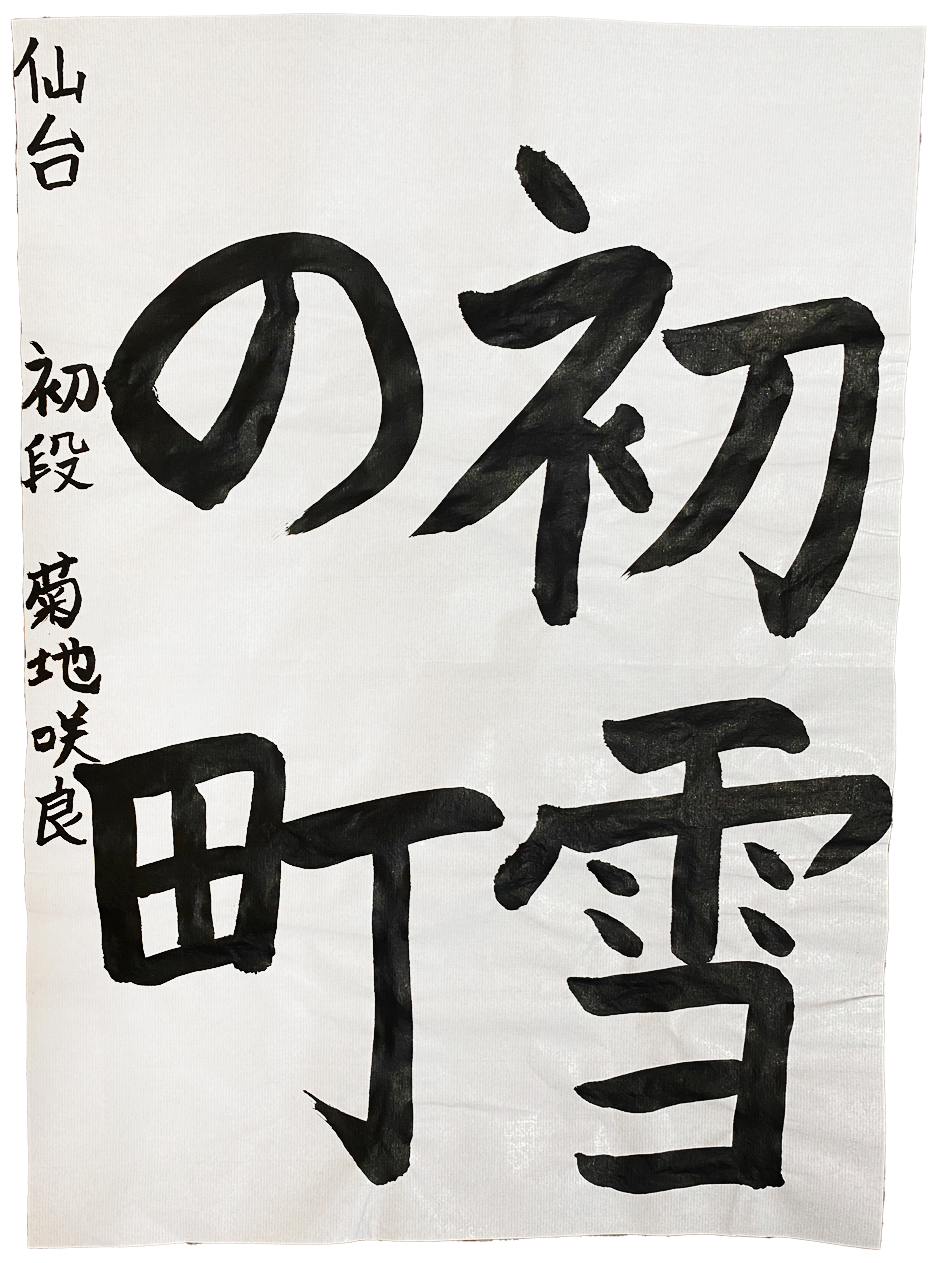 初雪
の町
仙台 初段 菊地咲良